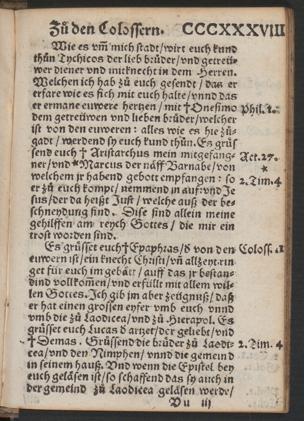 Zů den Colossern. CCCXXXVIII
Wie es vm̄ mich stadt/wirt euch kund
thůn Tychicos der lieb brůder/vnd getreü-
wer diener vnd mitknecht in dem Herren.
Welchen ich hab zů euch gesendt/das er
erfare wie es sich mit euch halte/vnnd das
er ermane euwere hertzen/mit † Onesimo Phil. 1.
dem getreüwen vnd lieben brůder/welcher
ist von den euweren: alles wie es hie zů
gadt/werdend sy euch kund thůn. Es grüs
send euch † Aristarchus mein mitgefang- Act. 27.
ner/vnd *Marcus der näff Barnabe/von *
welchem jr habend gebott empfangen: so 2. Tim. 4
er zů euch kompt/nemmend jn auf: vnd Je
sus/der da heißt Just/welche auß der be-
schneydung sind. Dise sind allein meine
gehilffen am reych Gottes/die mir ein
trost worden sind.
Es grüsset euch † Epaphras/d von den Coloss. 1
euwern ist/ein knecht Christi/vn̄ allzeyt rin
get für euch im gebätt/auff das jr bestan-
dind vollkom̄en/vnd erfüllt mit allem wil-
len Gottes. Ich gib jm aber zeügnuß/daß
er hat einen grossen eyfer vmb euch vnnd
vmb die zů Laodicea/vnd zů Hierapol. Es
grüsset euch Lucas d artzet/der geliebt/vnd
† Demas. Grüssend die brüder zů Laodi- 2. Tim. 4
cea/vnd den Nimphen/vnnd die gemeind
in seinem hauß. Vnd wenn die Epistel bey
euch geläsen ist/so schaffend das sy auch in
der gemeind zů Laodicea geläsen werde/
Vu iij